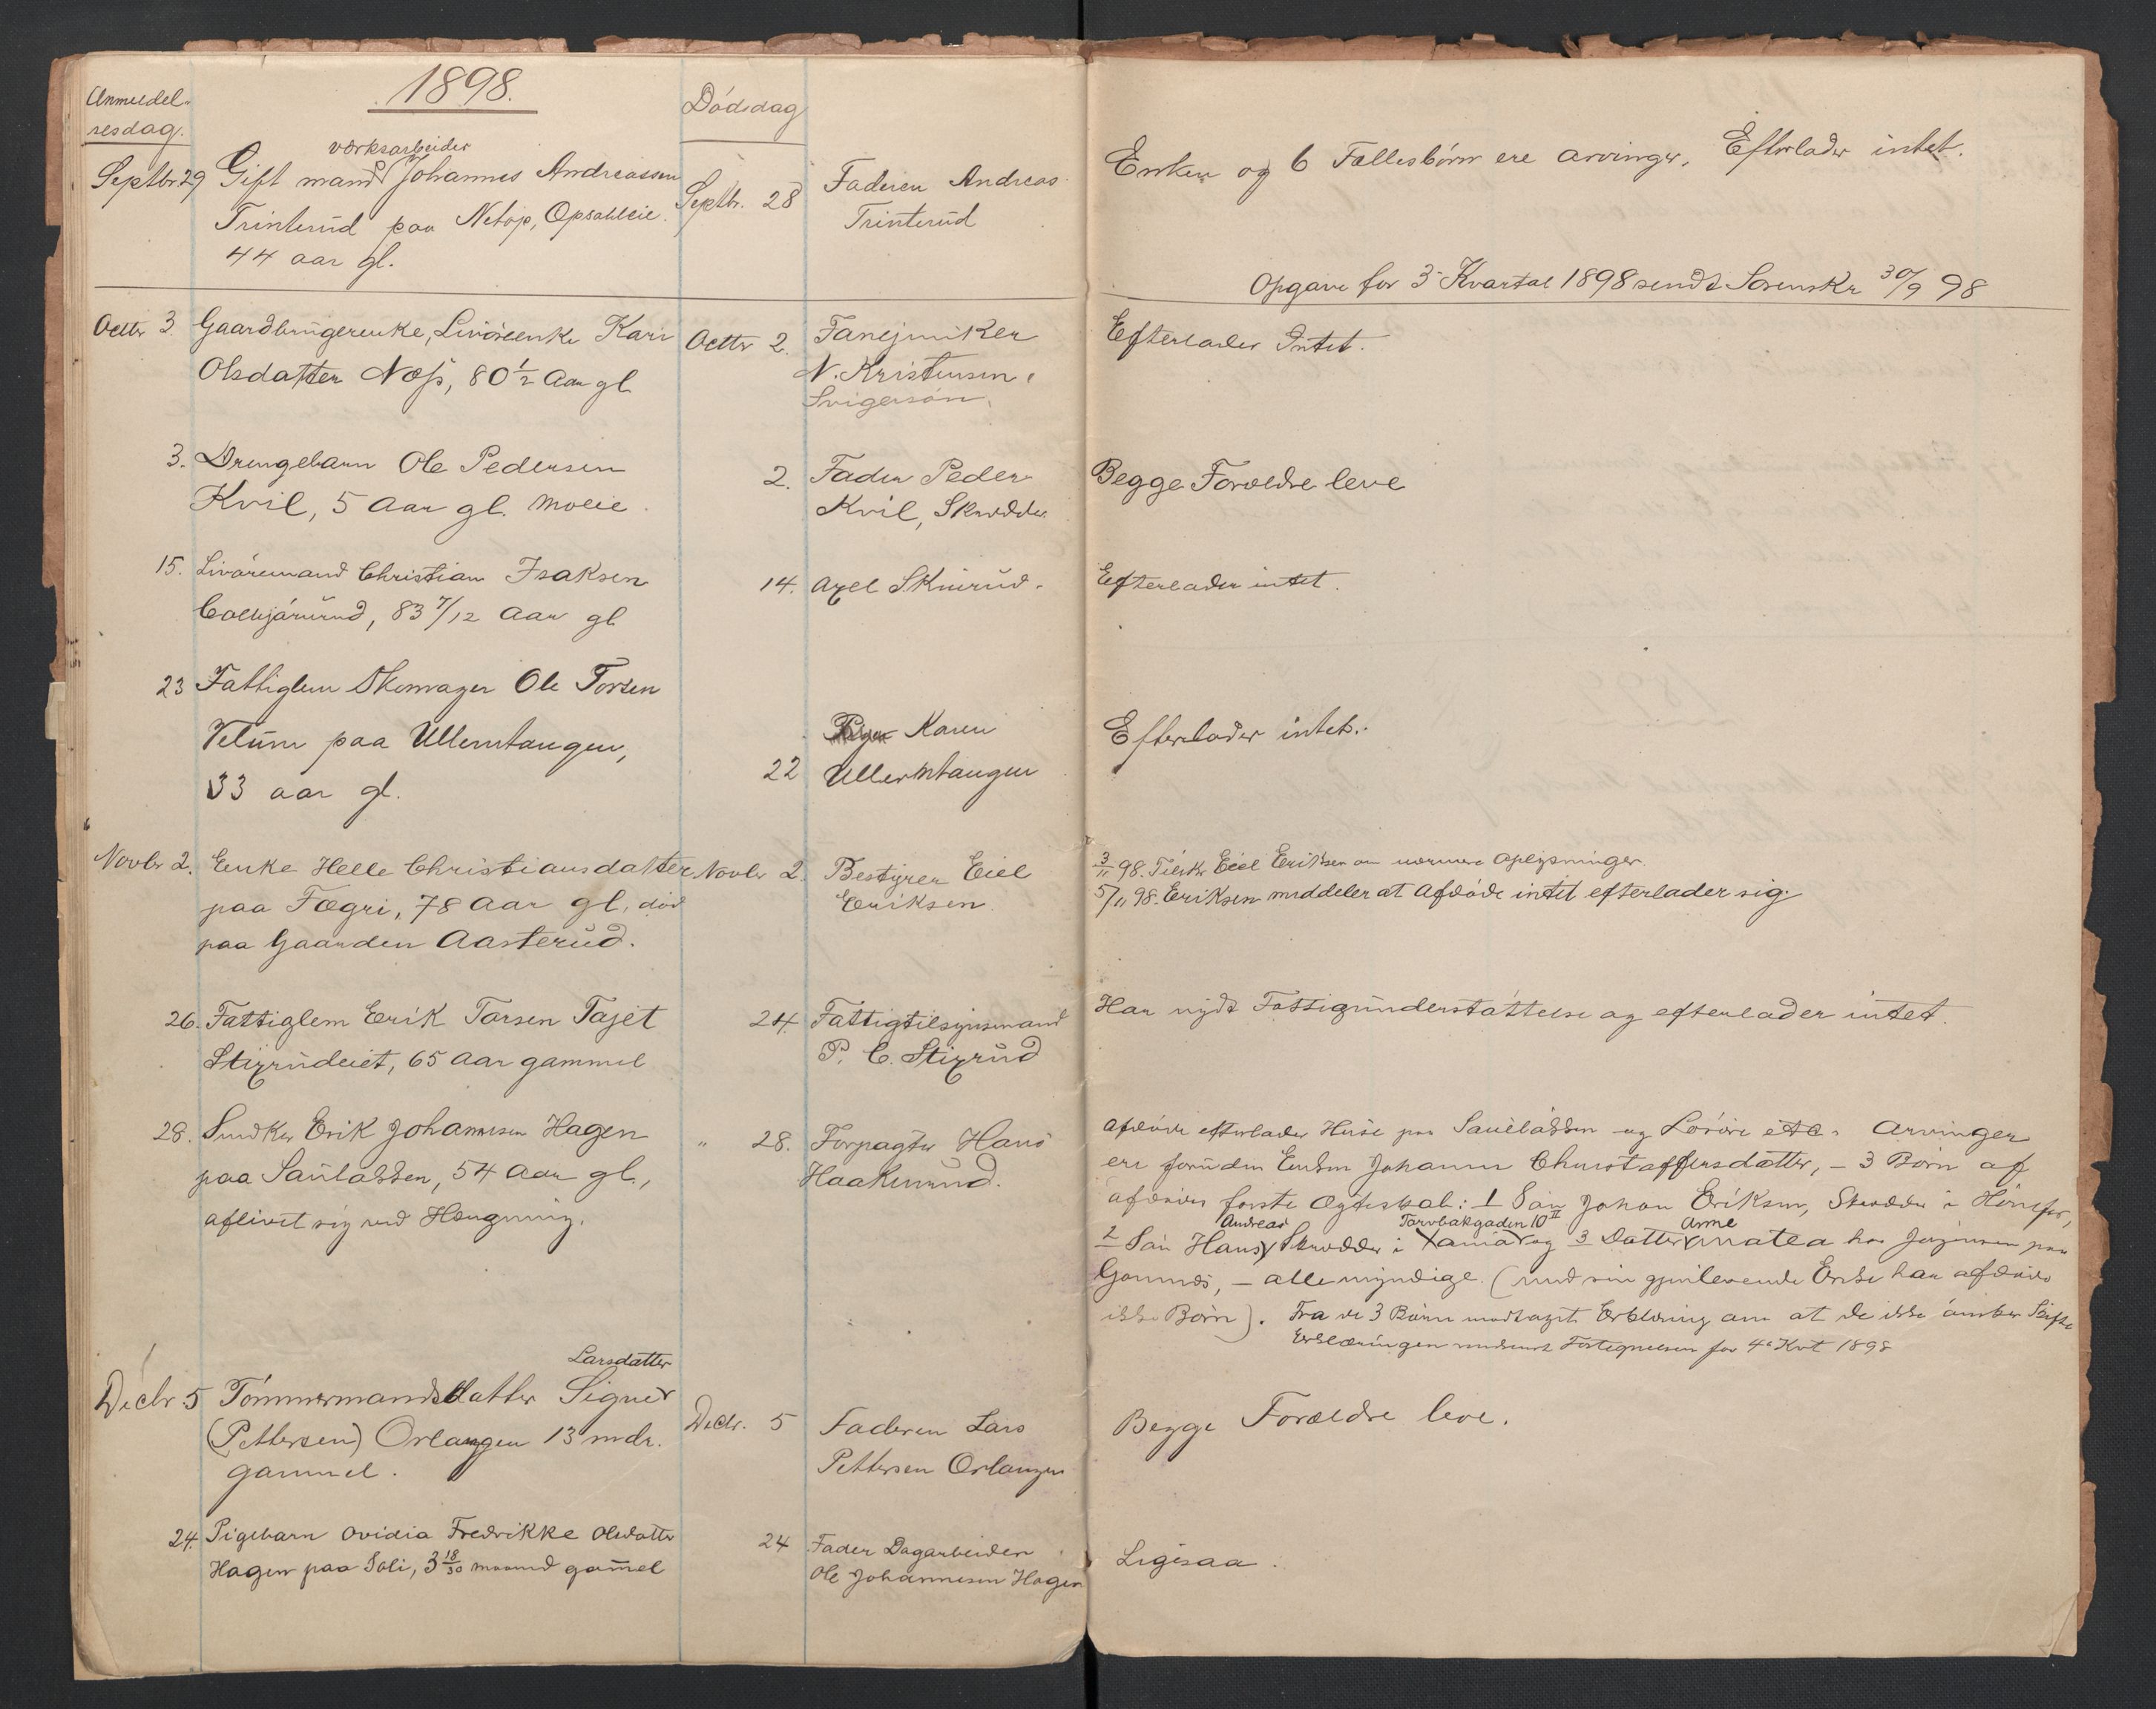 1898.
Anmeldel-
sesdag.
Dødsdag
Septbr 29 Gift mand værksarbeider Johannes Andreassen
Trinterud paa Netop, Opsahleie.
44 aar gl.
Septbr. 28
Faderen Andreas
Trinterud
Enken og 6 Fællesbörn ere arvinger. Efterlader intet.
Opgave for 3 Kvartal 1898 sendt Sorenskr 30/9 98
Octbr 3. Gaardbrugerenke, Livöreenke Kari
Olsdatter Næss, 80 1/2 Aar gl.
Octbr 2.
Fanejunker
N. Kristensen,
Svigersøn.
Efterlader Intet.
3. Drengebarn Ole Pedersen
Kvil, 5 Aar gl. Moeie.
2.
Fader Peder
Kvil, Skrædder
Begge Forældre leve
15. Livöremand Christian Isaksen
83 7/12 Aar gl
14.
Axel Skinrud.
Efterlader intet.
23 Fattiglem Skomager Ole Torsen
Velum paa Ullerntangen,
33 aar gl.
22
Karen
Ullerntangen
Efterlader intet.
Novbr 2. Enke Helle Christiansdatter
paa Fægri, 78 Aar gl., död
paa Gaarden Aasterud.
Novbr 2.
Bestyrer Eiel
Eriksen.
3/11 98. Tilskr. Eiel Eriksen om nærmere Oplysninger.
5/11 98. Eriksen meddeler at Afdöde intet efterlader sig.
26. Fattiglem Erik Tarsen Tajet
Stixrudeiet, 65 Aar gammel
24.
Fattigtilsynsmand
P. C. Stixrud
Har nydt Fattigunderstöttelse og efterlader intet.
28. Snedker Erik Johannesen Hagen
paa Saulabben, 54 Aar gl.,
aflivet sig ved Hængning.
" 28.
Forpagter Hans
Haakenrud.
Afdöde efterlader Huse paa Sauelabben og Lösöre etc. Arvinger
ere foruden Enken Johanne Christoffersdatter, – 3 Börn af
afdödes förste Ægteskab: 1 Sön Johan Eriksen, Skrædder i Hönefos,
2 Sön Hans Andreas Skrædder i Torvbakgaden 10 II og 3 Datter Anne Matea hos Jörgensen paa
– alle myndige. (med sin gjenlevende Enke har afdöde
ikke Börn). Fra de 3 Börn modtaget Erklæring om at de ikke önsker Skifte
Erklæringen medsendt Fortegnelsen for 4e Kvt 1898
Decbr. 5 Tömmermandsdatter Signe Larsdatter
(Pettersen) Orlangen 13 mdr.
gammel.
Decbr. 5
Faderen Lars
Pettersen Orlangen
Begge Forældre leve.
24. Pigebarn Ovidia Fredrikke Olsdatter
Hagen paa Soli, 3 18/30 maaned gammel
24
Fader Dagarbeider
Ole Johannesen Hagen
Ligesaa.